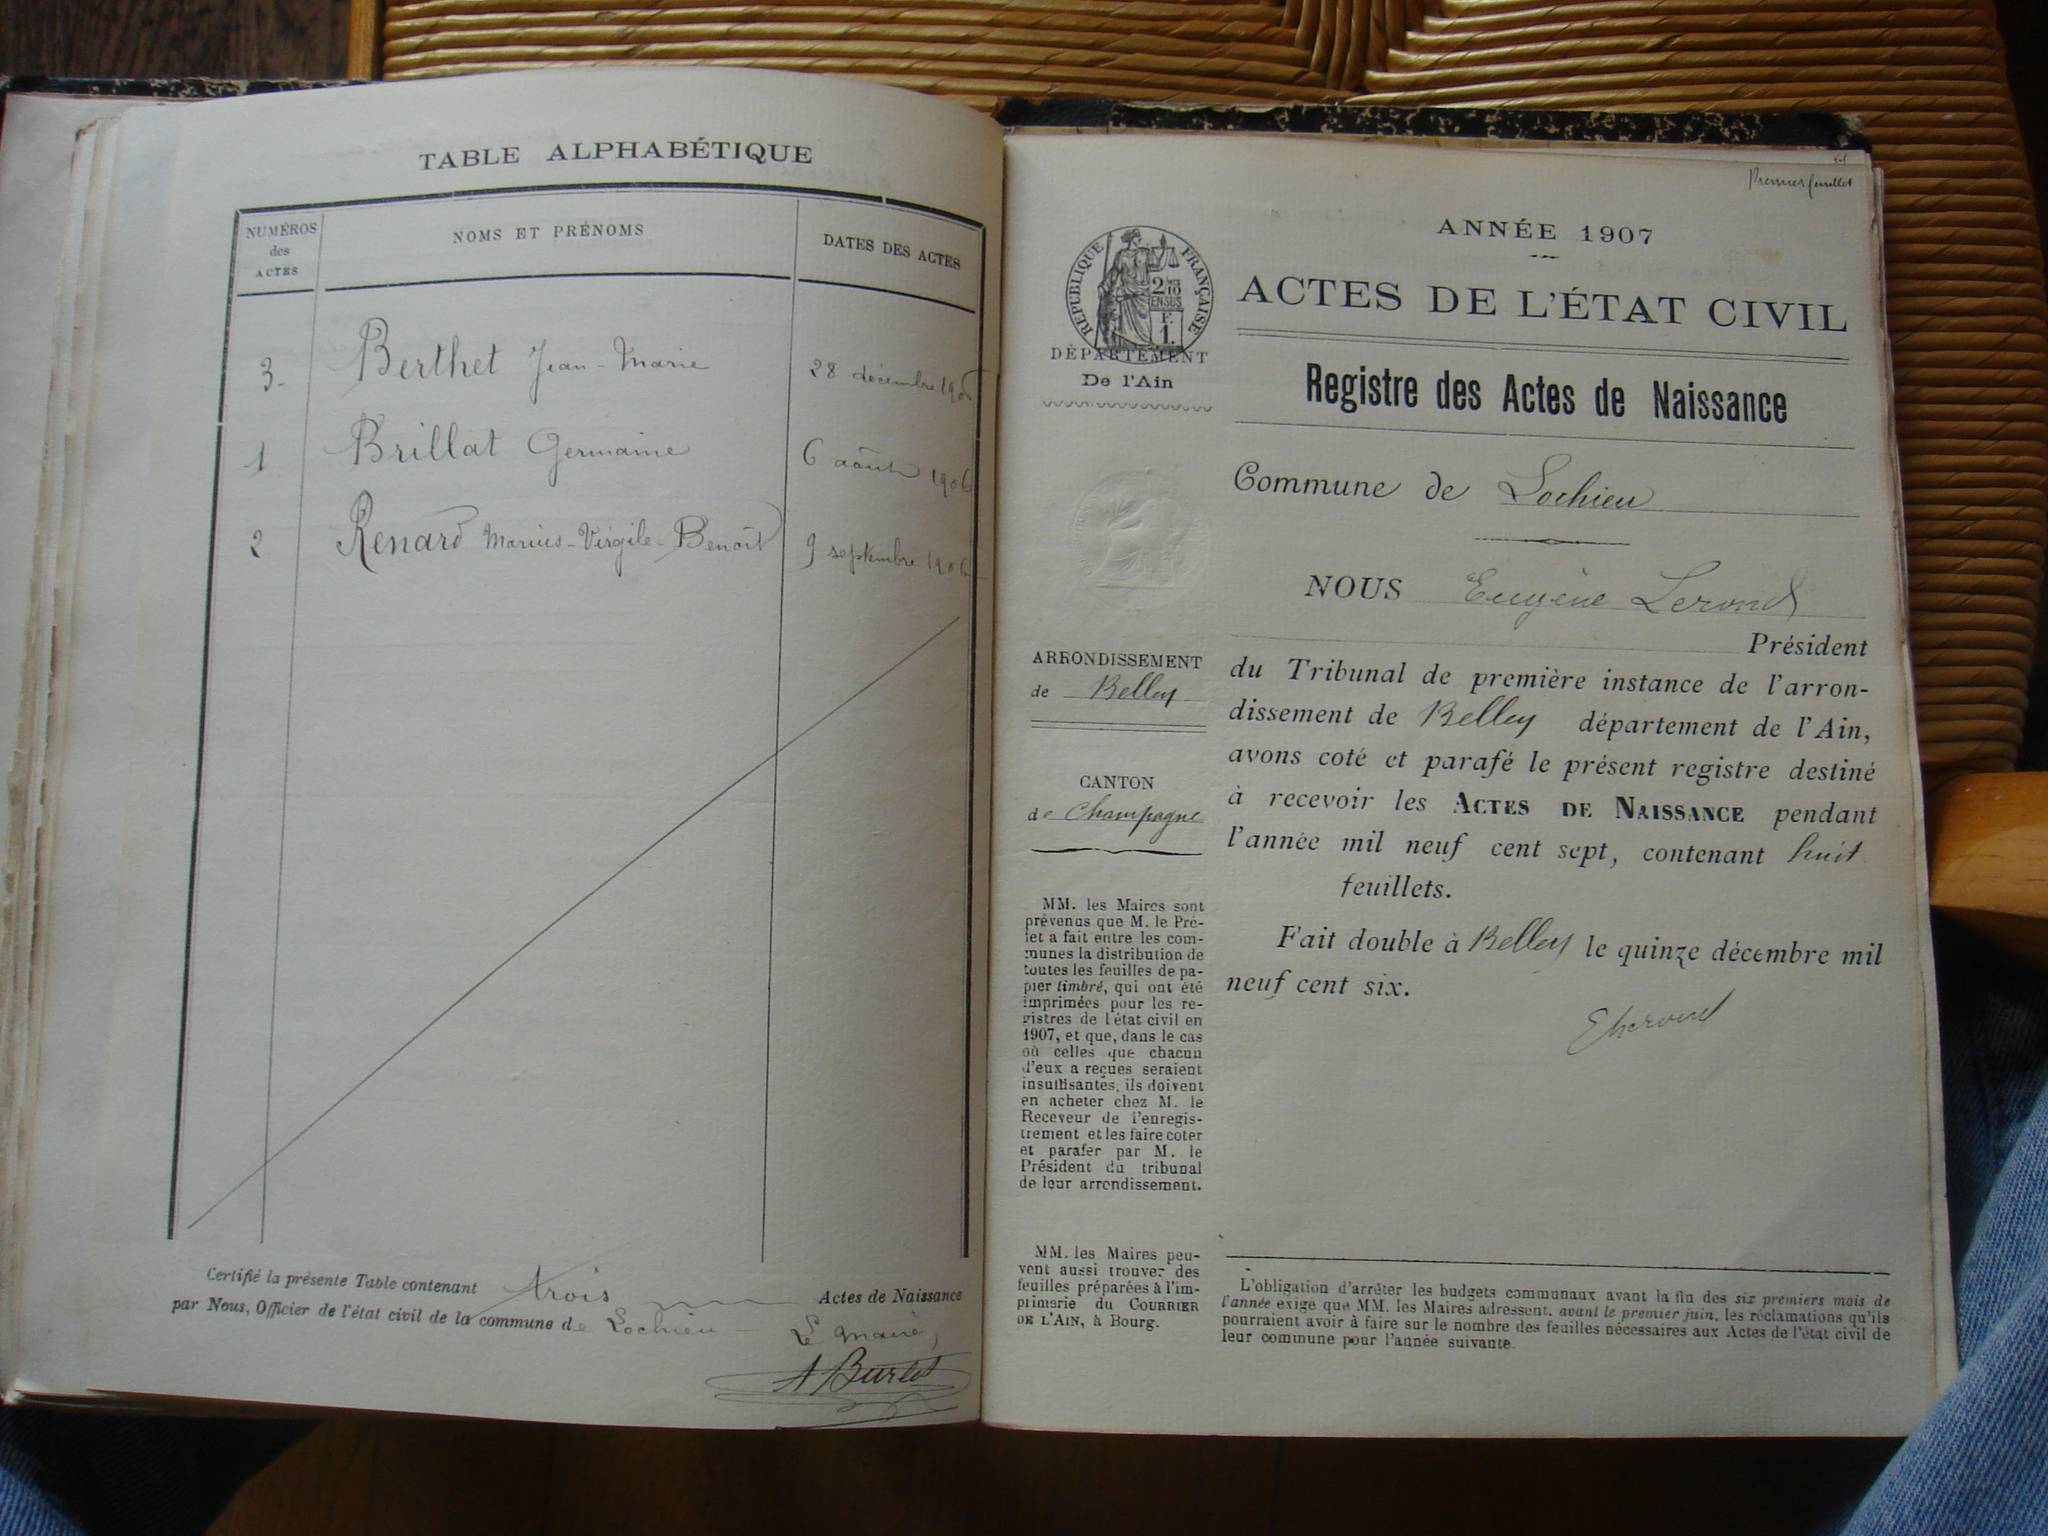 TABLE ALPHABÉTIQUE
NUMÉROS des ACTES
NOMS ET PRÉNOMS
DATES DES ACTES
3 Berthet Jean-Marie 28 décembre
1 Brillat Germaine 6 août 1906
2 Renard Marius-Virgile-Benoît 9 septembre 1906
Certifié la présente Table contenant trois Actes de Naissance
par Nous, Officier de l'état civil de la commune de Lochieu Le Maire,
A Burlet
Premier feuillet
ANNÉE 1907
ACTES DE L'ÉTAT CIVIL
Registre des Actes de Naissance
RÉPUBLIQUE FRANÇAISE
2/10
EN SUS
F.
1.
DÉPARTEMENT
De l'Ain
Commune de Lochieu
NOUS Eugène Lerond
Président
du Tribunal de première instance de l'arron-
dissement de Belley département de l'Ain,
avons coté et parafé le présent registre destiné
à recevoir les ACTES DE NAISSANCE pendant
l'année mil neuf cent sept, contenant huit
feuillets.
Fait double à Belley le quinze décembre mil
neuf cent six.
ARRONDISSEMENT
de Belley
CANTON
de Champagne
MM. les Maires sont
prévenus que M. le Pré-
fet a fait entre les com-
munes la distribution de
toutes les feuilles de pa-
pier timbré, qui ont été
imprimées pour les re-
gistres de l'état civil en
1907, et que, dans le cas
où celles que chacun
d'eux a reçues seraient
insuffisantes, ils doivent
en acheter chez M. le
Receveur de l'enregis-
trement et les faire coter
et parafer par M. le
Président du tribunal
de leur arrondissement.
MM. les Maires peu-
vent aussi trouver des
feuilles préparées à l'im-
primerie du COURRIER
DE L'AIN, à Bourg.
L'obligation d'arrêter les budgets communaux avant la fin des six premiers mois de
l'année exige que MM. les Maires adressent, avant le premier juin, les réclamations qu'ils
pourraient avoir à faire sur le nombre des feuilles nécessaires aux Actes de l'état civil de
leur commune pour l'année suivante.